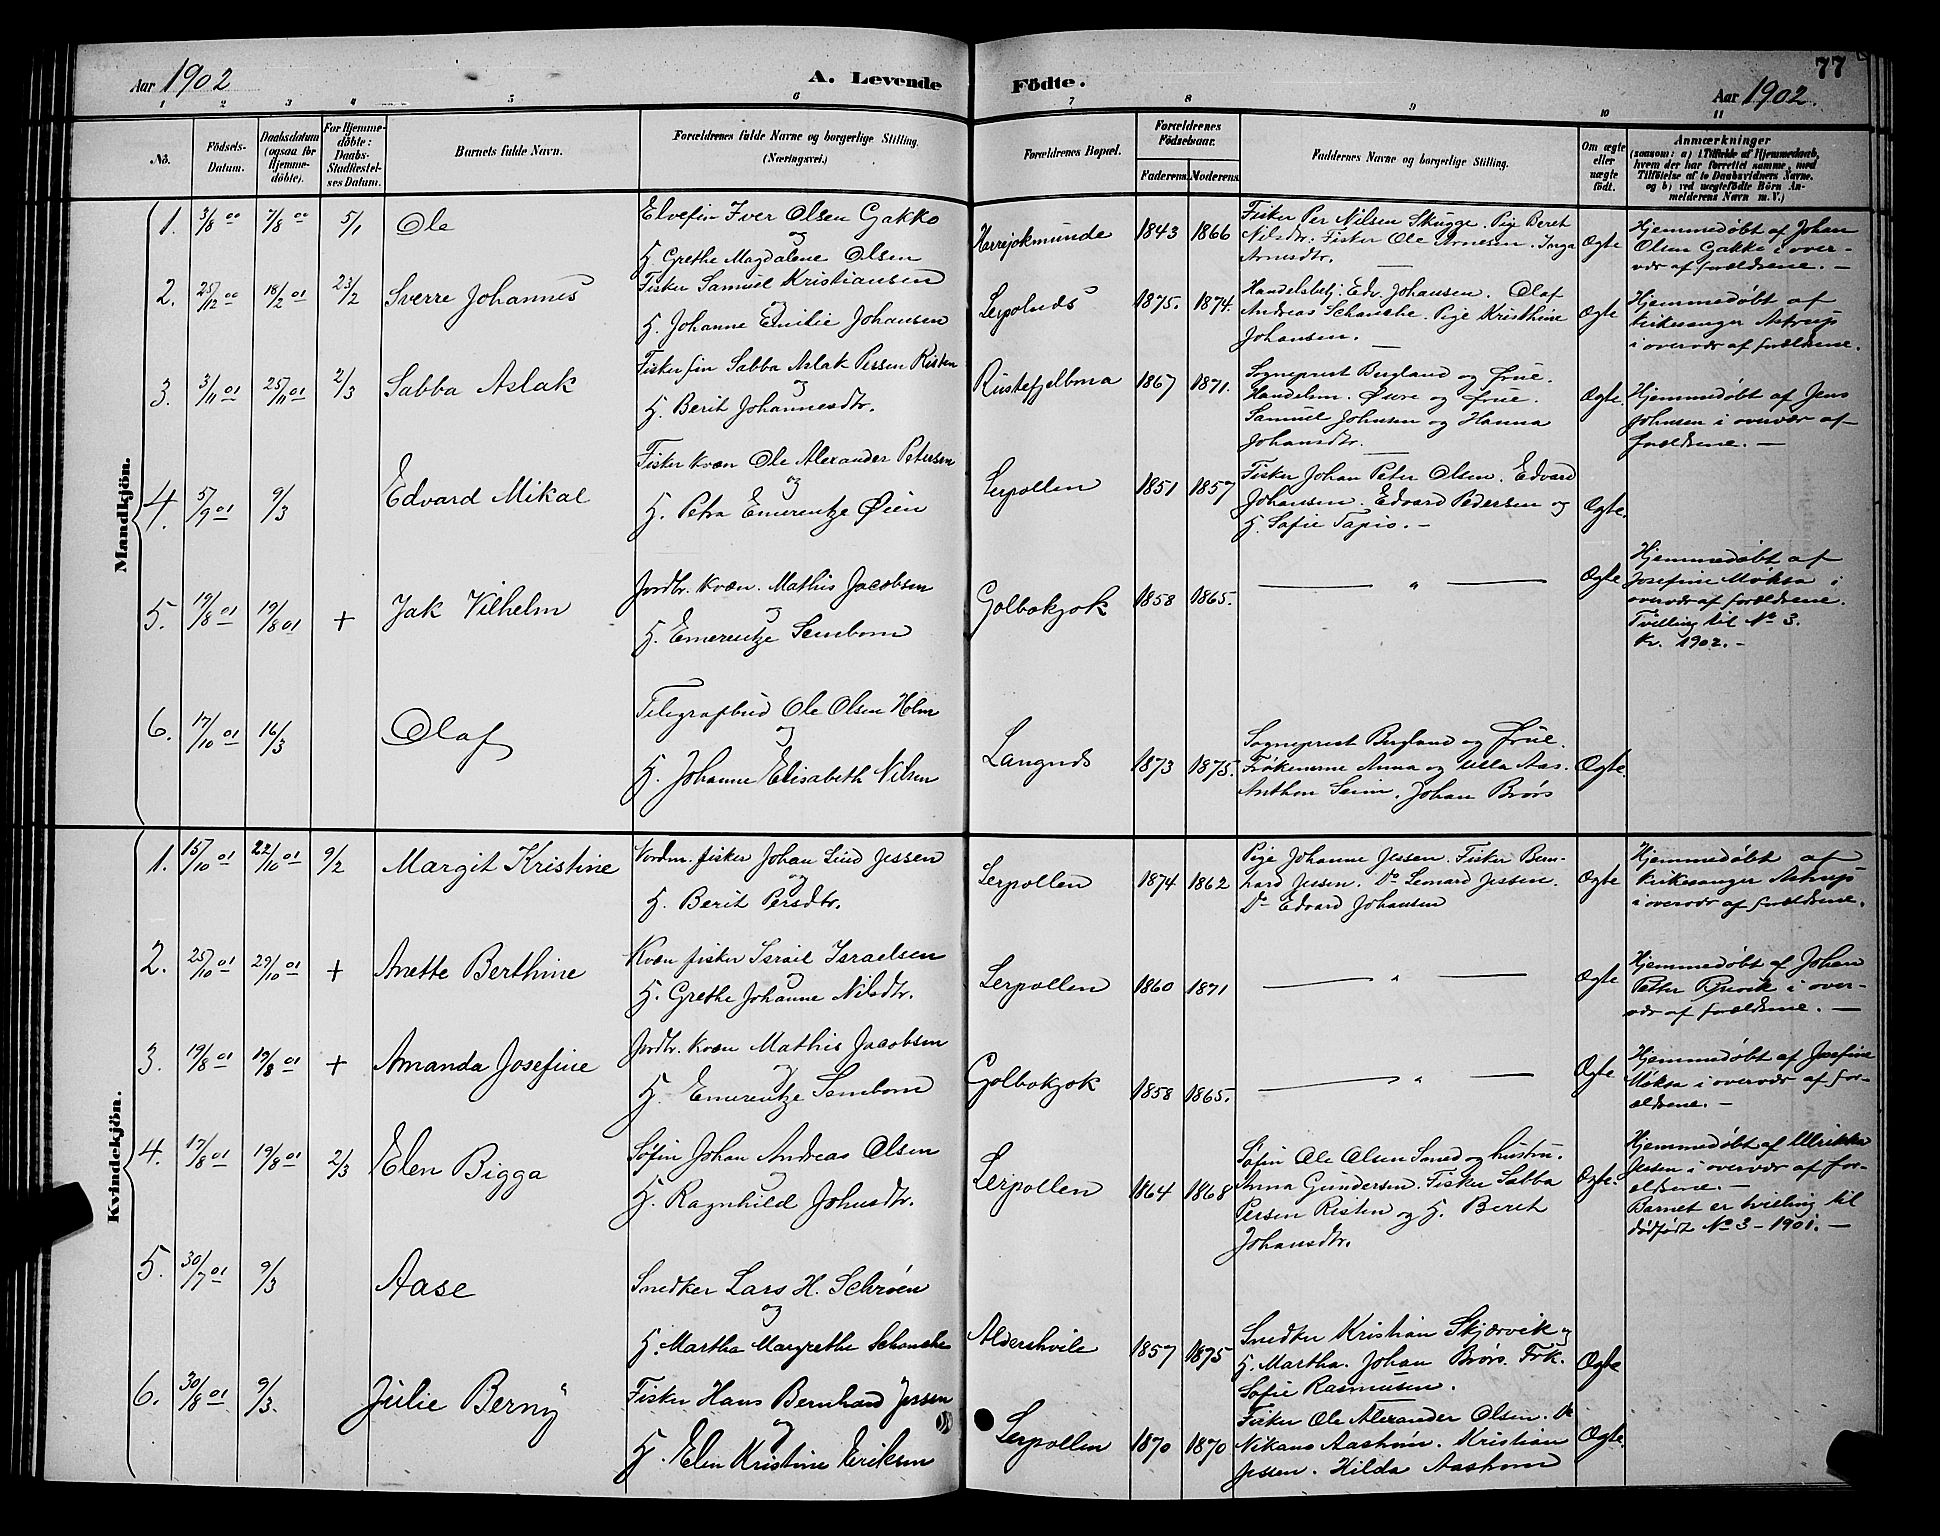 Aar 1902
A. Levende
Födte.
77
Aar 1902.
1 2 3 4 5 6 7 8 9 10 11
No.
Födsels-
Datum.
Daabsdatum
(ogsaa for
Hjemme-
döbte).
For Hjemme-
döbte:
Daabs-
Stadfæstel-
ses Datum.
Barnets fulde Navn.
Forældrenes fulde Navne og borgerlige Stilling.
(Næringsvei.)
Forældrenes Bopæl.
Forældrenes
Födselsaar.
Faderens.
Moderens.
Faddernes Navne og borgerlige Stilling.
Om ægte
eller
uægte
födt.
Anmærkninger
(saasom: a) i Tilfælde af Hjemmedaab,
hvem der har forrettet samme, med
Tilföielse af to Daabsvidners Navne,
og b) ved uægtefödte Börn An-
melderens Navn m. V.)
Mandkjön.
1. 3/8 00 7/8 00 5/1 Ole
Elvefin Iver Olsen Gakko
og
H. Grethe Magdalene Olsen
Harrejokmunde 1843 1866
Fisker Per Nilsen Skugge. Pige Beret
Nilsdtr. Fisker Ole Arnesen. Inga
Arnesdtr.
Ægte
Hjemmedøbt af Johan
Olsen Gakko i over-
vær af forældrene. —
2. 25/12 00 18/2 01 23/2 Sverre Johannes
Fisker Samuel Kristiansen
og
H. Johanne Emilie Johansen
Lerpolnds 1875. 1874.
Handelsbetj. Edv. Johansen. Olaf
Andreas Schanche. Pige Kristhine
Johansen.
Ægte
Hjemmedøbt af
Kirkesanger Astrup
i overvær af forældrene.
3. 3/11 01 25/11 01 2/3 Sabba Aslak
Fisker fin Sabba Aslak Persen Risten
og
H. Berit Johannesdtr.
Rustefjelbma 1867 1871.
Sogneprest Bergland og frue.
Handelsm. Øwre og frue.
Samuel Johnsen og Hanna
Johansdtr.
Ægte.
Hjemmedøbt af Jens
Johnsen i overvær af
forældrene. —
4. 5/9 01 9/3 Edvard Mikal
Fisker kvæn Ole Alexander Petersen
og
H. Petra Emerentze Øien
Lerpollen 1851 1857
Fisker Johan Peter Olsen. Edvard
Johansen. Edvard Pedersen og
H. Sofie Tapio. —
Ægte.
5. 19/8 01 19/8 01 + Jak Vilhelm
Jordbr. kvæn. Mathis Jacobsen
og
H. Emerentze Sembom
Golbokjok 1858 1865.
— " —
Ægte
Hjemmedøbt af
Josefine Møksa i
overvær af forældrene.
Tvilling til No 3.
Kv. 1902. —
6. 17/10 01 16/3 Olaf
Telegrafbud Ole Olsen Holm
og
H. Johanne Elisabeth Nilsen
Langnds 1873 1875.
Sogneprest Bergland og frue.
Frøknerne Anna og Ulla Aas.
Anthon Seim. Johan Brørs
Ægte.
Kvindekjön.
1. 15/10 01 22/10 01 9/2 Margit Kristine
Nordm. fisker Johan Lind Jessen
og
H. Berit Persdtr.
Lerpollen 1874 1862
Pige Johanne Jessen. Fisker Bern-
hard Jessen. Do Leonard Jessen.
Do Edvard Johansen
Ægte
Hjemmedøbt af
Kirkesanger Astrup
i overvær af forældrene.
2. 25/10 01 29/10 01 + Anette Berthine
Kvæn fisker Israil Israelsen
og
H. Grethe Johanne Nilsdtr.
Lerpollen 1860 1871
— " —
Ægte
Hjemmedøbt af Johan
Petter i over-
vær af forældrene. —
3. 19/8 01 19/8 01 + Amanda Josefine
Jordbr. kvæn Mathis Jacobsen
og
H. Emerentze Sembom
Golbokjok 1858 1865.
— " —
Ægte
Hjemmedøbt af Josefine
Møksa i overvær af for-
ældrene. —
4. 17/8 01 19/8 01 2/3 Elen Bigga
Søfin Johan Andreas Olsen
og
H. Ragnhild Johnsdtr.
Lerpollen 1864 1868
Søfin Ole Olsen Smed og hustru.
Anna Gundersen. Fisker Sabba
Persen Risten og H. Beret
Johansdtr.
Ægte.
Hjemmedøbt af Ulrikka
Jessen i overvær af for-
ældrene. —
Barnet er tvilling til
dødfødt No 3 - 1901. —
5. 30/7 01 9/3 Aase
Snedker Lars H. Schrøen
og
H. Martha Margrethe Schanche
Aldershvile 1857 1875
Snedker Kristian Skjærvik og
H. Martha. Johan Brørs. Frk.
Sofie Rasmusen.
Ægte
6. 30/8 01 9/3. Julie Berny
Fisker Hans Bernhard Jessen
og
H. Elen Kristine Eriksen
Lerpollen 1870 1870
Fisker Ole Alexander Olsen. Do
Nikano Aashom. Kristian
Jessen. Hilda Aashom
Ægte.